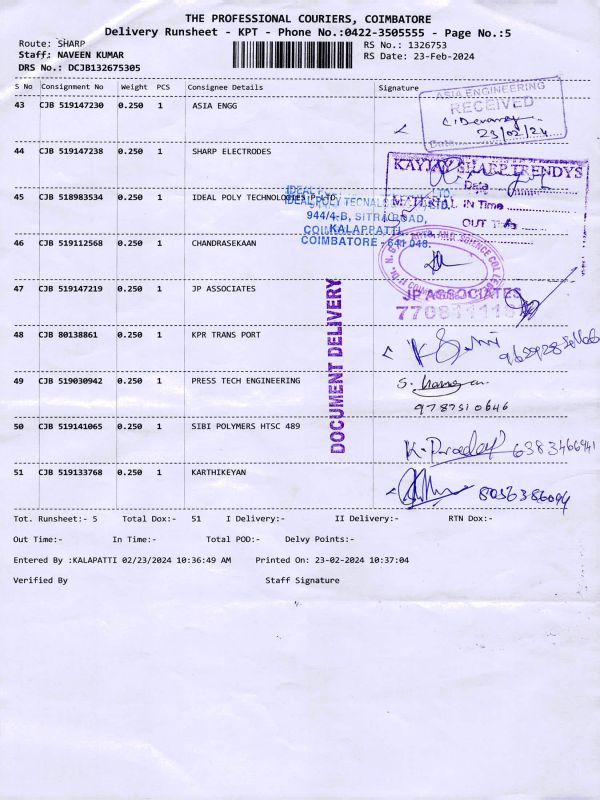 THE PROFESSIONAL COURIERS, COIMBATORE
Delivery Runsheet - KPT - Phone No.:0422-3505555 - Page No.:5
Route: SHARP
Staff: NAVEEN KUMAR
DRS No.: DCJB132675305
RS No.: 1326753
RS Date: 23-Feb-2024
S No Consignment No Weight PCS Consignee Details Signature
43 CJB 519147230 0.250 1 ASIA ENGG
ASIA ENGINEERING
RECEIVED
23/02/24
Date
44 CJB 519147238 0.250 1 SHARP ELECTRODES
KAYJAY SHARP TRENDYS
Date
MATERIAL IN Time
OUT
45 CJB 518983534 0.250 1 IDEAL POLY TECHNOLOGIES P LTD
944/4-B, SITRA ROAD,
KALAPPATTI,
COIMBATORE - 641 048.
46 CJB 519112568 0.250 1 CHANDRASEKAAN
47 CJB 519147219 0.250 1 JP ASSOCIATES
JP ASSOCIATES
DOCUMENT DELIVERY
48 CJB 80138861 0.250 1 KPR TRANS PORT
49 CJB 519030942 0.250 1 PRESS TECH ENGINEERING
9787510646
50 CJB 519141065 0.250 1 SIBI POLYMERS HTSC 489
6383466941
51 CJB 519133768 0.250 1 KARTHIKEYAN
8056386094
Tot. Runsheet:- 5 Total Dox:- 51 I Delivery:- II Delivery:- RTN Dox:-
Out Time:- In Time:- Total POD:- Delvy Points:-
Entered By :KALAPATTI 02/23/2024 10:36:49 AM Printed On: 23-02-2024 10:37:04
Verified By Staff Signature